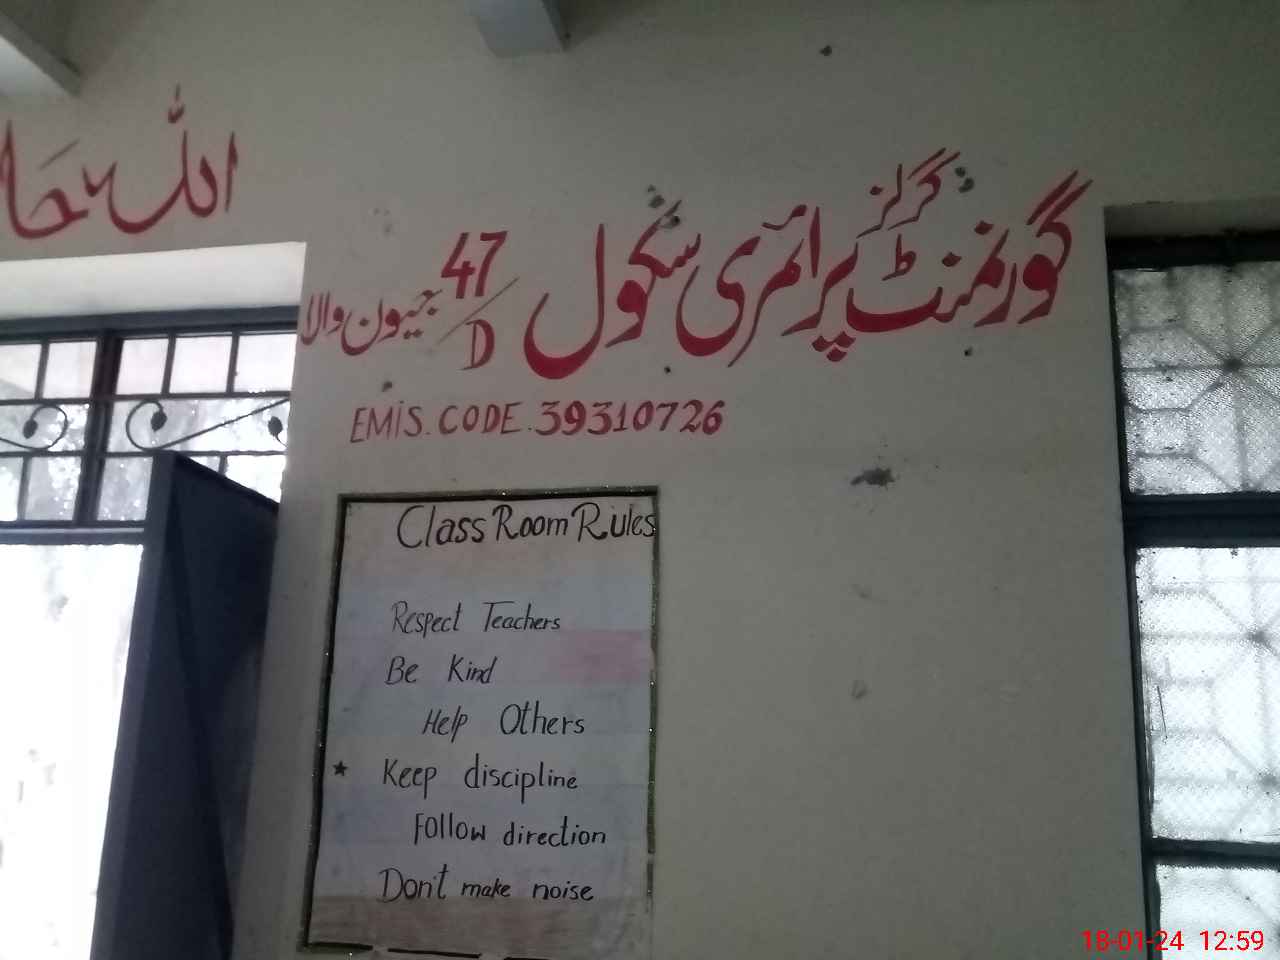 گورنمنٹ گرلز پرائمری سکول 47/D جیون والا
EMIS. CODE. 39310726
Class Room Rules
Respect Teachers
Be Kind
Help Others
★ Keep discipline
Follow direction
Don't make noise
اللہ
18-01-24 12:59